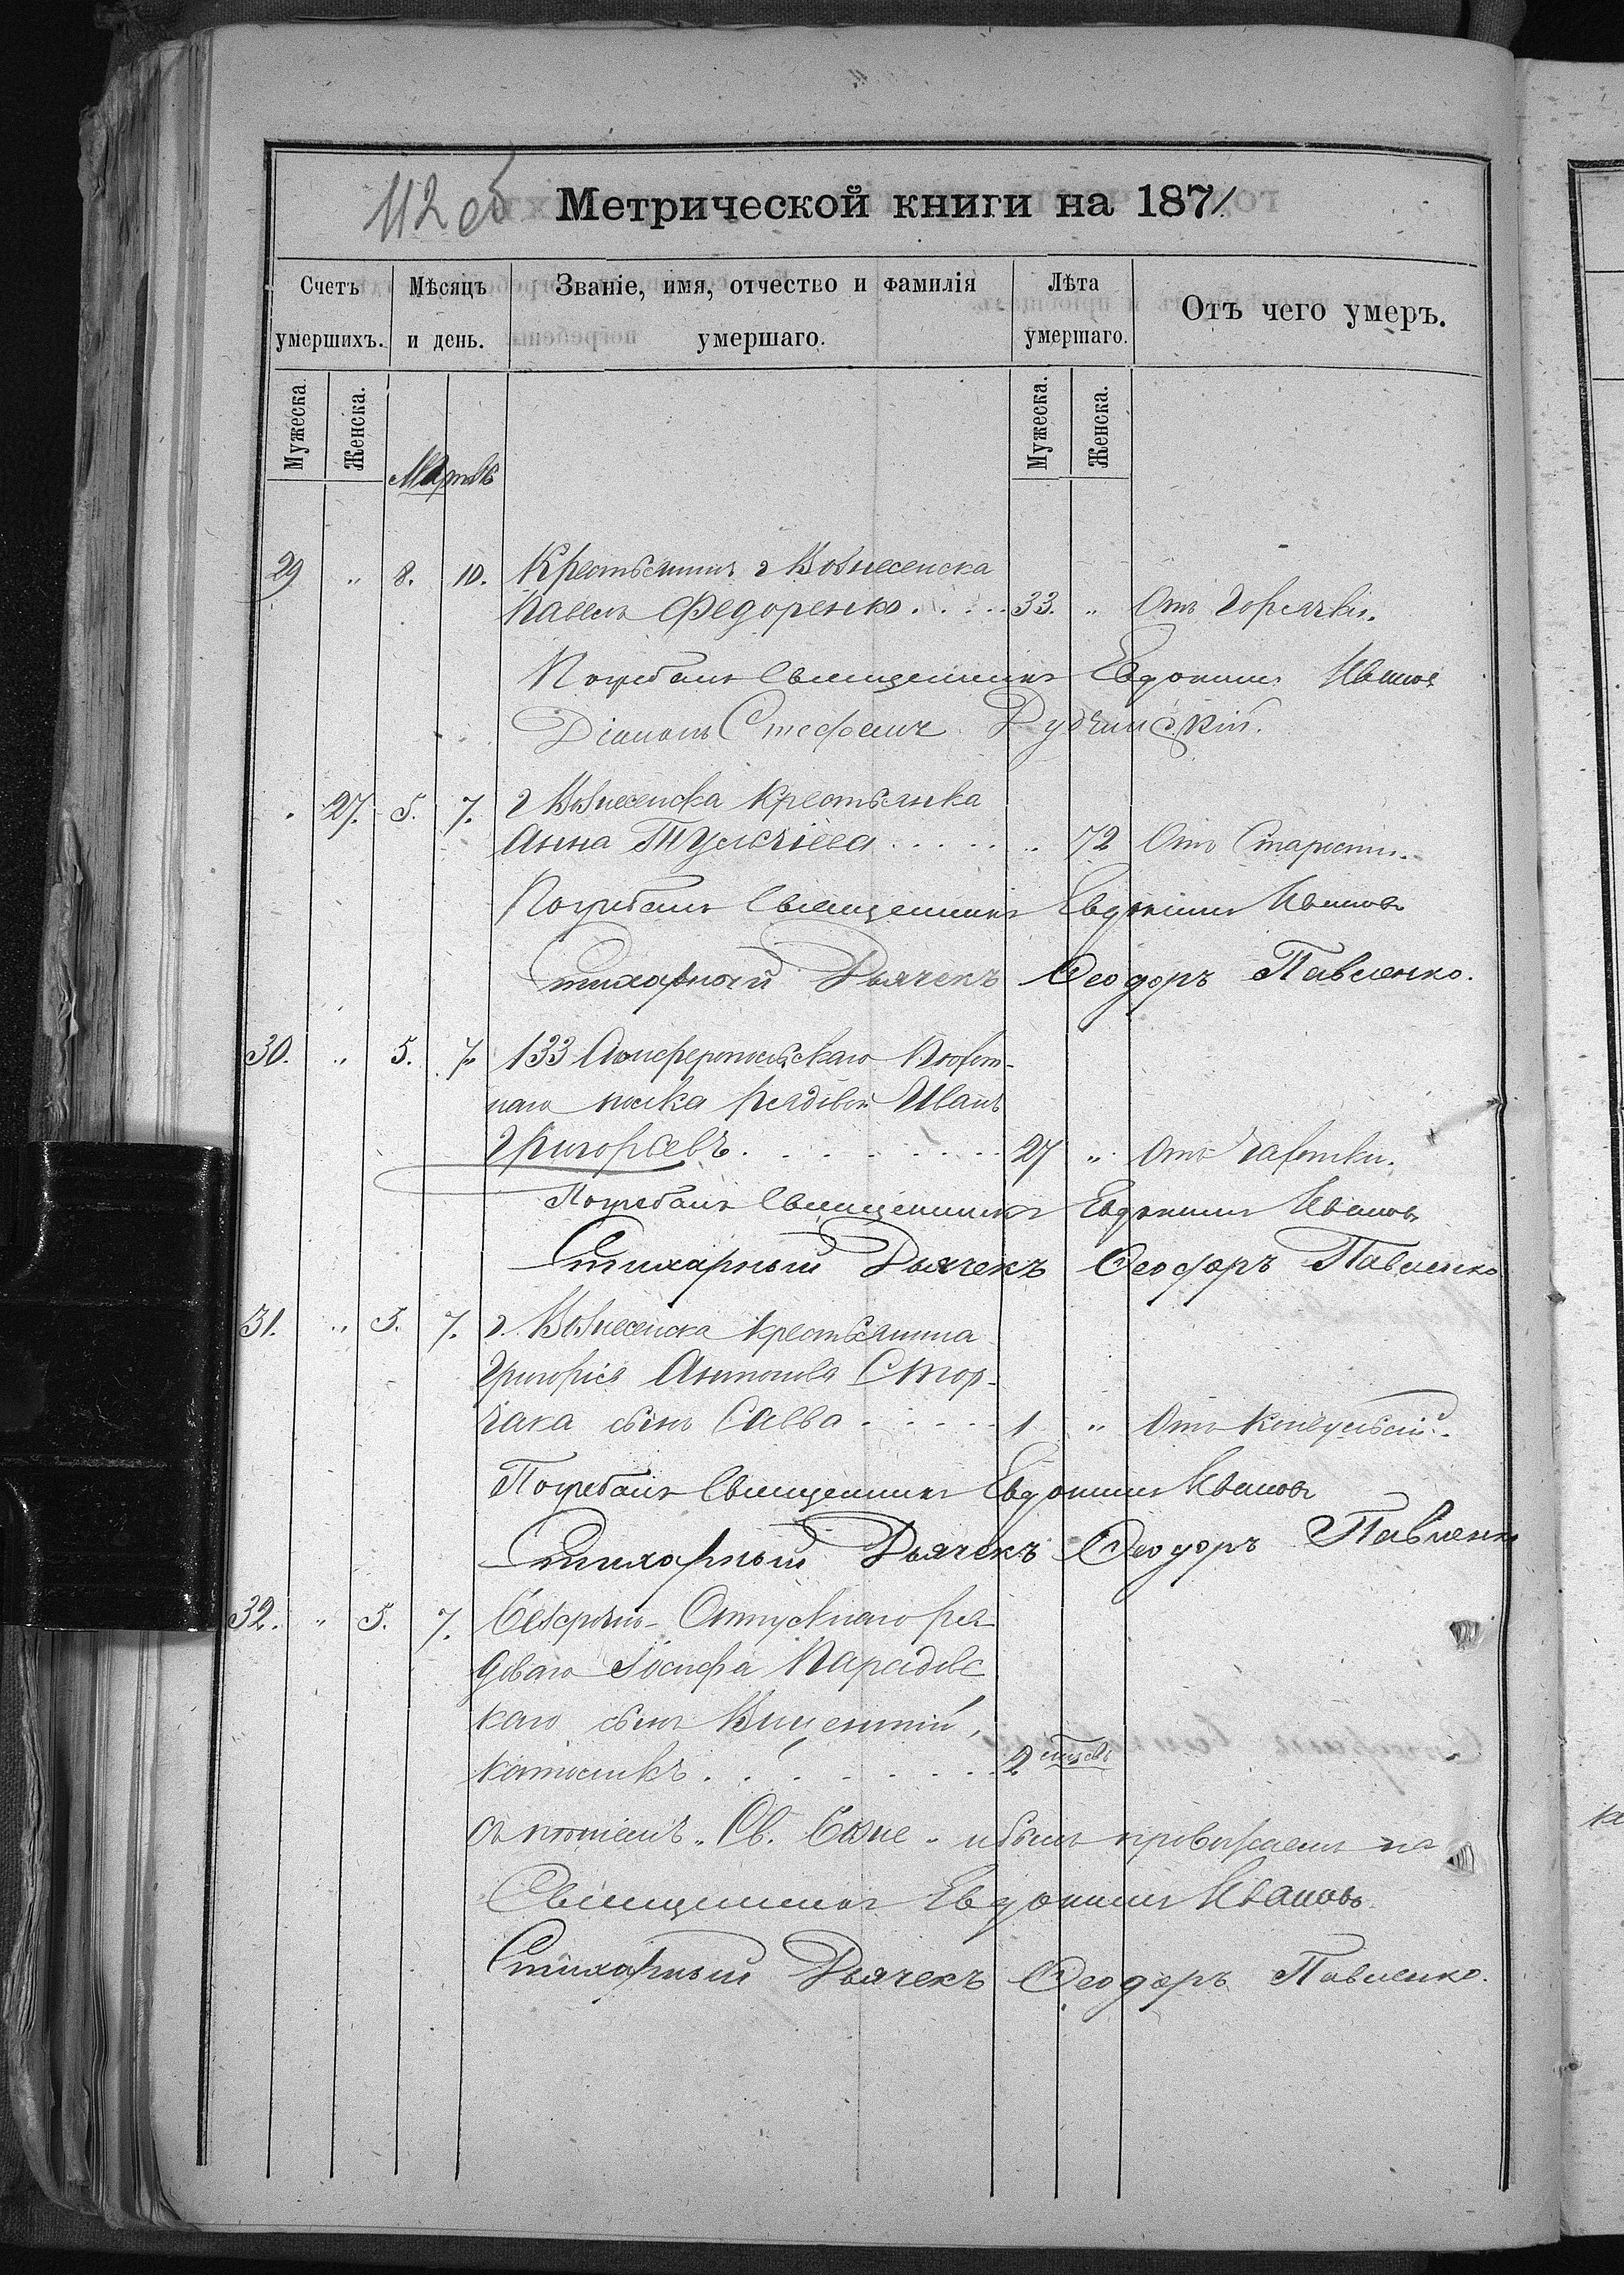 112 об
Метрической книги на 1871
Счетъ умершихъ.
Мѣсяцъ и день.
Званіе, имя, отчество и фамилія умершаго.
Лѣта умершаго.
Отъ чего умеръ.
Мужеска.
Женска.
Мартъ
Мужеска.
Женска.
29 " 8. 10. Крестьянинъ г Вознесенска
Павелъ Федоренко 33. " Отъ горячки.
Погребалъ Священникъ Евдокимъ Ивановъ
Діаконъ Стефанъ
27. 5. 7. г Вознесенска крестьянка
Анна 72 Отъ Старости.
Погребалъ Священникъ Евдокимъ Ивановъ
Стихарный Дьячекъ Ѳеодоръ Павленко.
30. " 5. 7. 133 Симферопольскаго Пѣхот-
наго полка рядовой Иванъ
Григорьевъ 27 " Отъ чахотки.
Погребалъ Священникъ Евдокимъ Ивановъ
Стихарный Дьячекъ Ѳеодоръ Павленко
31. " 5. 7. г. Вознесенска крестьянина
Григорія Антонова Стор-
чака сынъ Савва 1 " Отъ конвульсій.
Погребалъ Священникъ Евдокимъ Ивановъ
Стихарный Дьячекъ Ѳеодоръ Павленко
32. " 5. 7. Безсрочно-Отпускнаго ря
доваго Іосифа
каго сынъ Викентій,
католикъ 2
Св. Боже
Священникъ Евдокимъ Ивановъ
Стихарный Дьячекъ Ѳеодоръ Павленко.